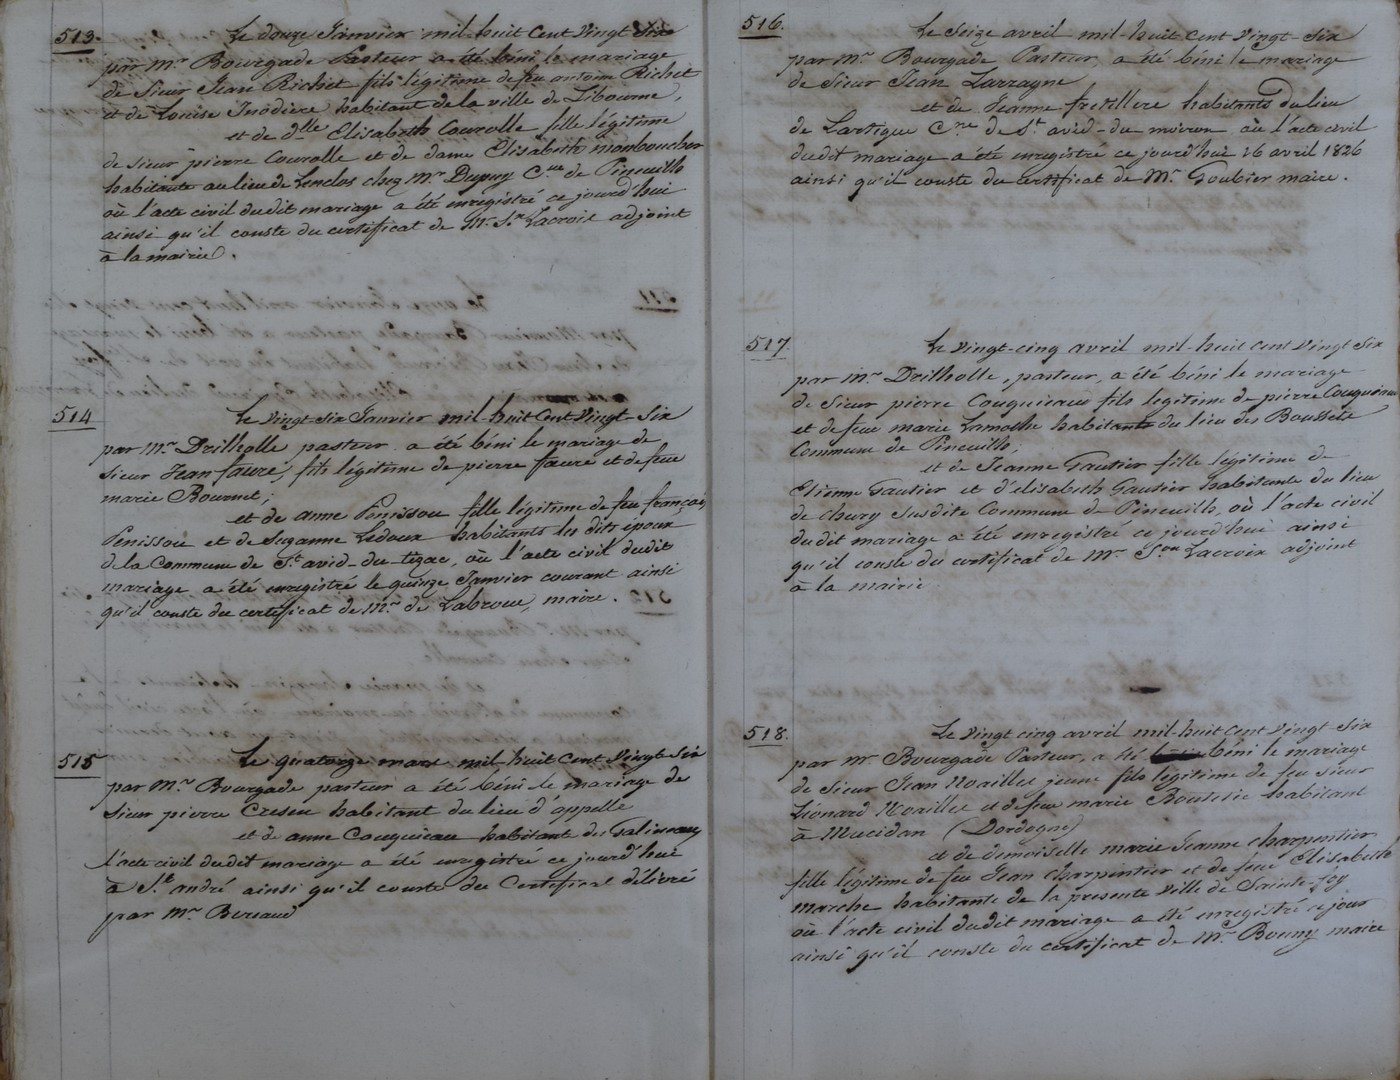 513.
Le douze Janvier mil-huit Cent Vingt Six
par Mr Bourgade Pasteur a été béni le mariage
de Sieur Jean Richet fils légitime de feu antoine Richet
et de Louise habitant de la ville de Libourne,
et de dlle Elisabeth Courolle fille légitime
de sieur pierre Courolle et de dame Elisabeth monboucher
habitante au lieu de Lenclos chez Mr Dupuy Cne de Pineuilh
où l'acte civil dudit mariage a été enregistré ce jourd'hui
ainsi qu'il conste du certificat de Mr Sn Lacroix adjoint
à la mairie.
514
Le vingt-six Janvier mil-huit Cent Vingt-Six
par Mr Drilholle pasteur a été béni le mariage de
sieur Jean faure, fils légitime de pierre faure et de feue
marie Bournet;
et de anne Penissou fille légitime de feu françois
Penissou et de Suzanne Ledoux habitants les dits époux
de la Commune de St avid-du-tizac, où l'acte civil dudit
mariage a été enregistré le quinze Janvier courant ainsi
qu'il conste du certificat de Mr de Labrouse, maire.
515
Le quatorze mars mil-huit Cent Vingt Six
par Mr Bourgade pasteur a été béni le mariage de
sieur pierre habitant du lieu d'appelle
et de anne Couquieau habitant des
l'acte civil dudit mariage a été enregistré ce jourd'hui
à St andré ainsi qu'il conste du Certificat délivré
par Mr
516.
Le Seize avril mil-huit Cent Vingt-Six
par Mr Bourgade Pasteur, a été béni le mariage
de Sieur Jean Larragne
et de Jeanne habitants du lieu
de Lartigue Cne de St avid-du-moiron où l'acte civil
dudit mariage a été enregistré ce jourd'hui 16 avril 1826
ainsi qu'il conste du certificat de Mr Goubier maire.
517.
Le Vingt-cinq avril mil-huit Cent Vingt Six
par Mr Drilholle, pasteur, a été béni le mariage
de Sieur pierre Couquieau fils légitime de pierre Couquieau
et de feue marie Lamothe habitants du lieu des Boussets
Commune de Pineuilh,
et de Jeanne Gautier fille légitime de
Etienne Gautier et d'elisabeth Gautier habitante du lieu
de Chury susdite Commune de Pineuilh, où l'acte civil
dudit mariage a été enregistré ce jourd'hui ainsi
qu'il conste du certificat de Mr Sn Lacroix adjoint
à la mairie
518.
Le Vingt cinq avril mil-huit Cent Vingt-Six
par mr Bourgade Pasteur, a été béni le mariage
de sieur Jean Noailles jeune fils légitime de feu sieur
Léonard Noailles et de feue marie habitant
à Mucidan (Dordogne)
et de demoiselle marie Jeanne Charpentier
fille légitime de feu Jean Charpentier et de feue Elisabeth
Marche habitante de la presente ville de Sainte-foy
où l'acte civil dudit mariage a été enregistré ce jour
ainsi qu'il conste du certificat de Mr Bouny maire